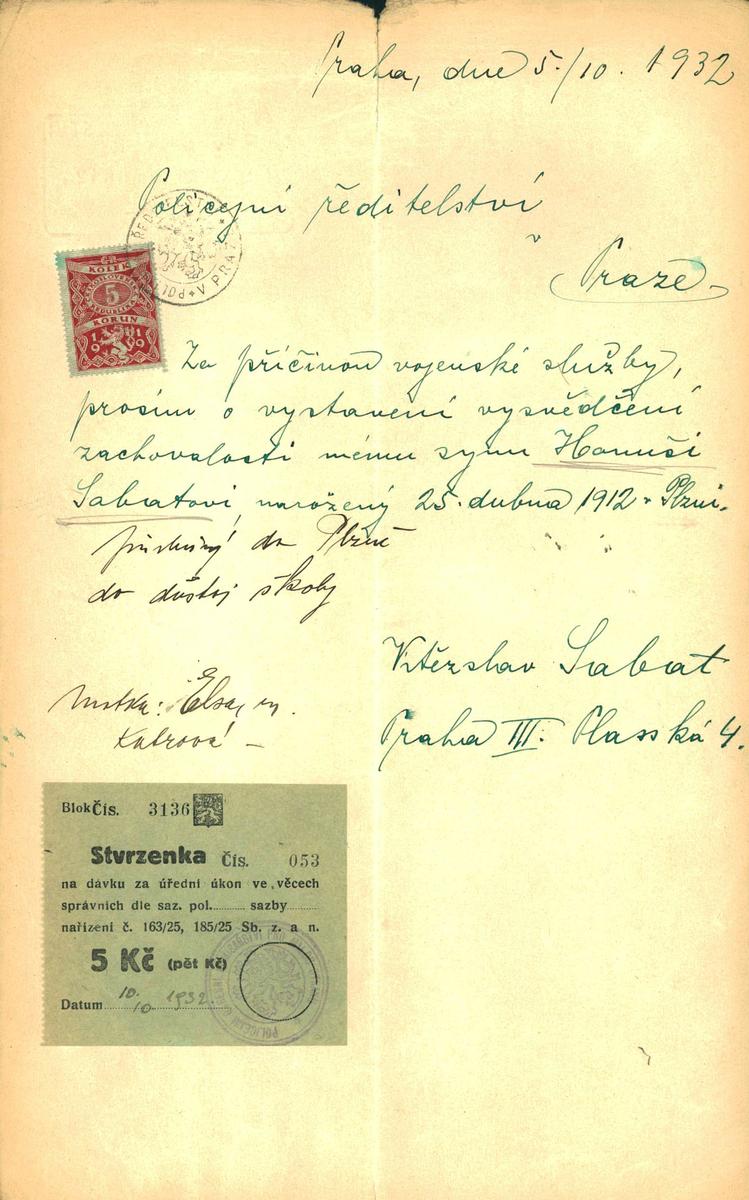 Praha, dne 5./10. 1932
Policejní ředitelství
v
Praze
POLI ŘEDITELSTVÍ V PRAZE
KOLEK
ČESKOSLOVENSKÁ REPUBLIKA
5
KORUN
1919
Za příčinou vojenské služby,
prosím o vystavení vysvědčení
zachovalosti mému synu Hanuši
Sabatovi, narozený 25. dubna 1912 v Plzni.
do Plzně
do důstoj školy
Vítězslav Sabat
Praha III. Plasská 4.
Matka: Elsa, r.
Blok Čís. 3136
Stvrzenka Čís. 053
na dávku za úřední úkon ve věcech
správních dle saz. pol......... sazby.........
nařízení č. 163/25, 185/25 Sb. z. a n.
5 Kč (pět Kč)
Datum 10/10 1932
POLICEJNÍ